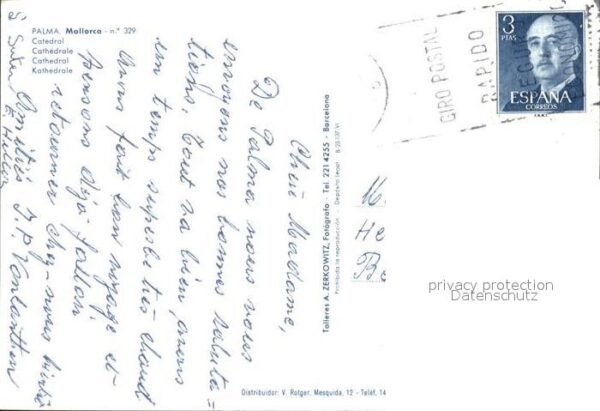 PALMA. Mallorca - n.º 329
Catedral
Cathédrale
Cathedral
Kathedrale
Chère Madame,
De Palma nous vous
envoyons nos bonnes saluta=
tions. Tout va bien, avons
un temps superbe très chaud
Avons fait bon voyage et
pensons déjà
retourner chez-nous
Amitiés J.P. Vonlanthen
Talleres A. ZERKOWITZ, Fotógrafo - Tel. 221 4255 - Barcelona
Prohibida la reproducción - Depósito Legal B-23.137-VI
Distribuidor: V. Rotger. Mesquida, 12 - Teléf. 14
GIRO POSTAL
RAPIDO
SEGURO
ECONOMICO
3
PTAS
ESPAÑA
CORREOS
M.
He
Be
privacy protection
Datenschutz